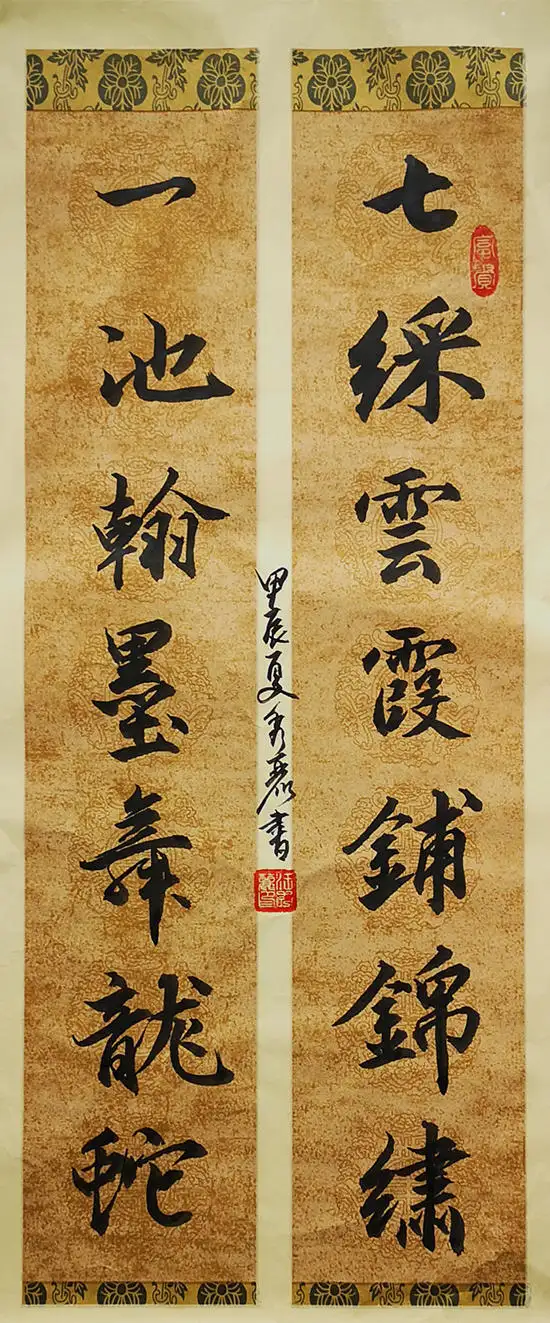 七綵雲霞鋪錦繡
一池翰墨舞龍蛇
甲辰夏 書